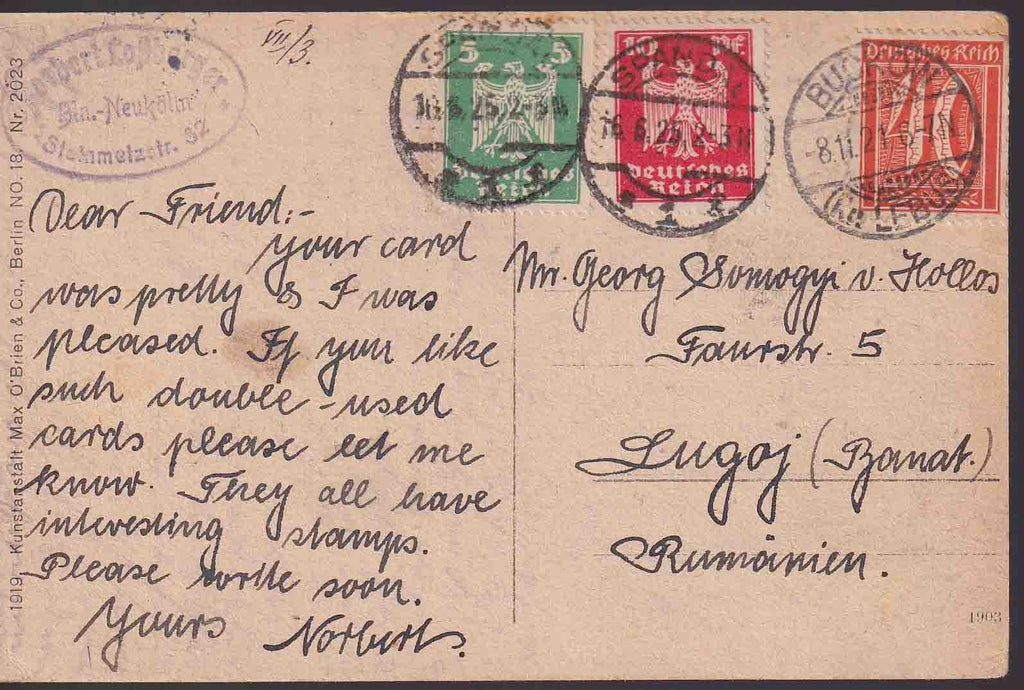 VII/3.
Bln.-Neukölln
Steinmetzstr. 82
5 5
Deutsches
Reich
10 PF
Deutsches
Reich
Deutsches Reich
SPANDAU
16.6.25.2-3N
SPANDAU
16.6.25.2-3N
BUCKOW
-8.11.21
LEBUS
Dear Friend:-
your card
was pretty & I was
pleased. If you like
such double-used
cards please let me
know. They all have
interesting stamps.
Please write soon.
Yours Norbert.
Mr. Georg Somogyi v. Hollos
Faurstr. 5
Lugoj (Banat.)
Rumänien.
1903
1919. Kunstanstalt Max O'Brien & Co., Berlin NO. 18. Nr. 2023